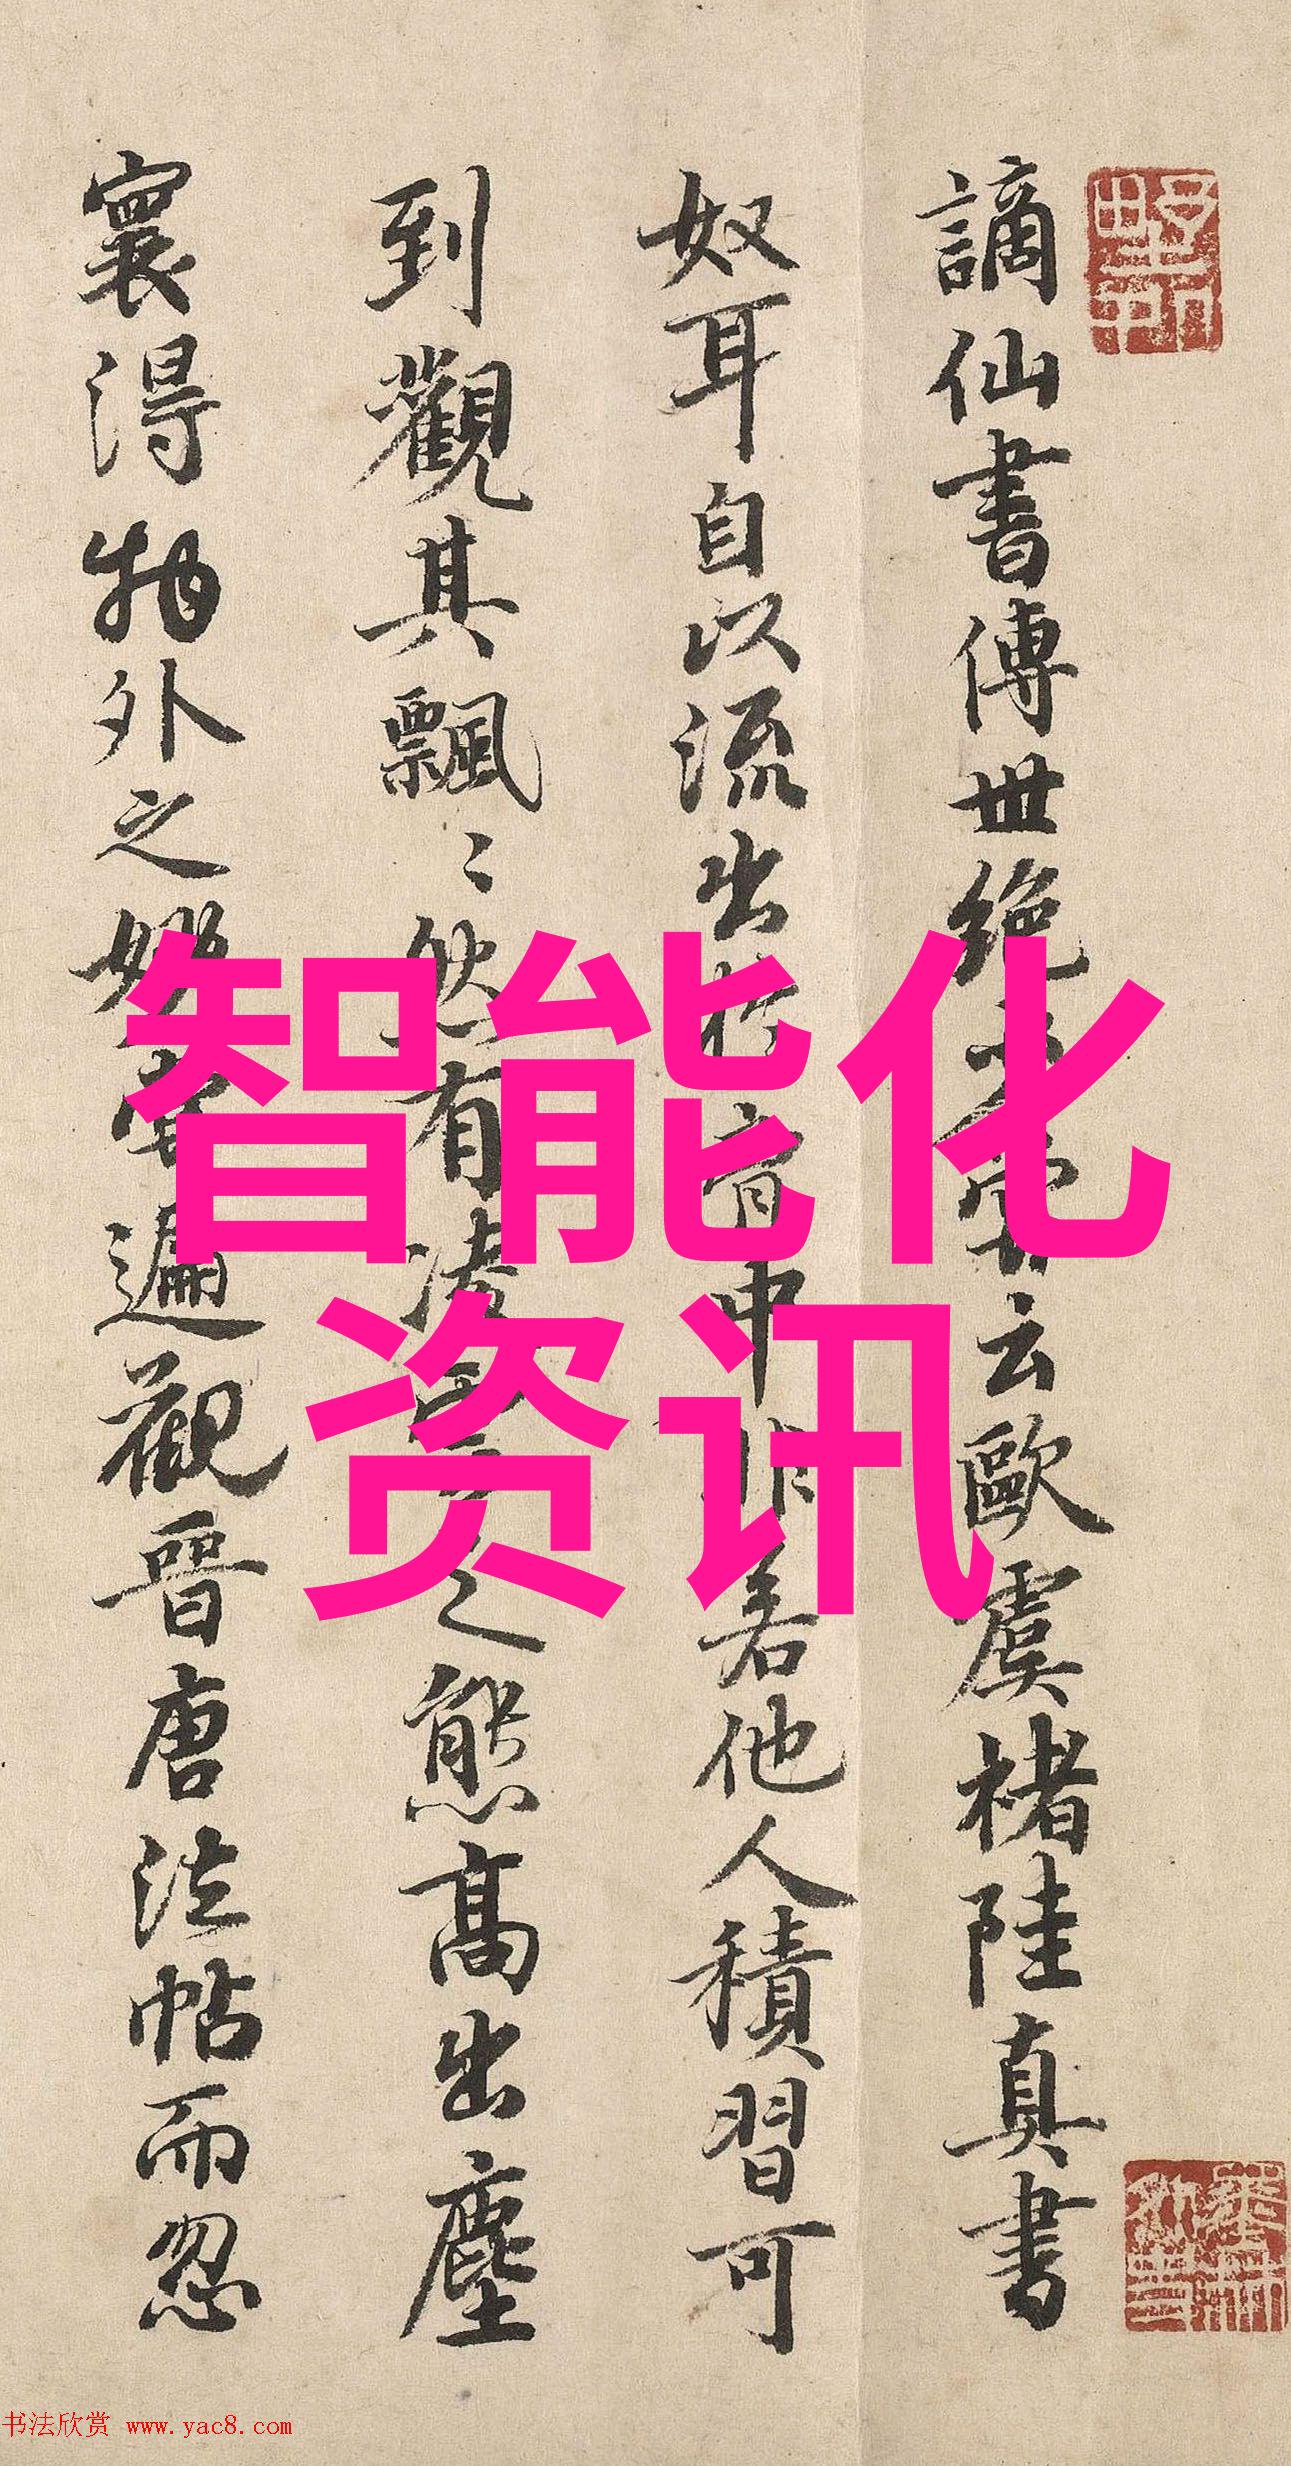 謫仙書傳世絕少嘗云歐虞褚陸真書
奴耳自以流出於胷中非若他人積習可
到觀其飄〻然有凌雲之態高出塵
寰得物外之妙嘗遍觀晉唐法帖而忽
智能化
资讯
书法欣赏 www.yac8.com